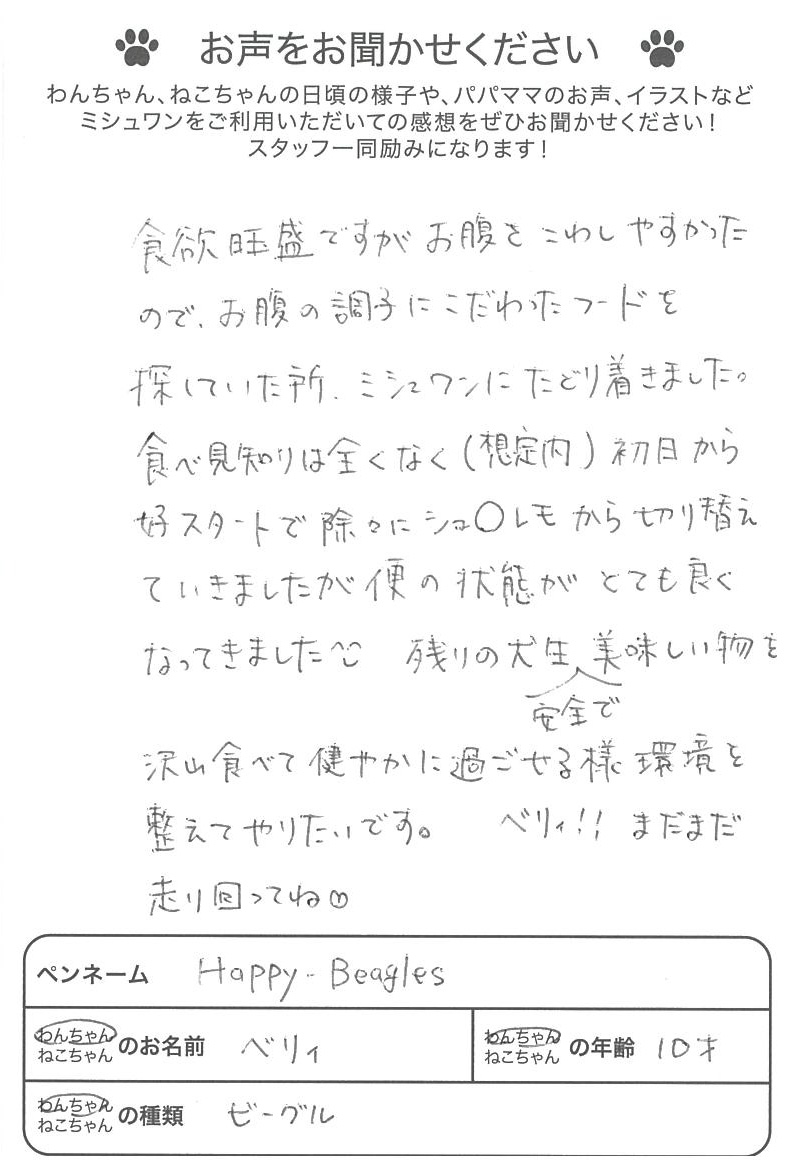 お声をお聞かせください
わんちゃん、ねこちゃんの日頃の様子や、パパママのお声、イラストなど
ミシュワンをご利用いただいての感想をぜひお聞かせください！
スタッフ一同励みになります！
食欲旺盛ですがお腹をこわしやすかった
ので、お腹の調子にこだわったフードを
探していた所、ミシュワンにたどり着きました。
食べ見知りは全くなく(想定内)初日から
好スタートで除々にシュ〇レモから切り替え
ていきましたが便の状態がとても良く
なってきました 残りの犬生、美味しい物を
安全で
沢山食べて健やかに過ごせる様環境を
整えてやりたいです。 ベリィ!! まだまだ
走り回ってね♡
ペンネーム Happy-Beagles
わんちゃん ねこちゃん のお名前 ベリィ わんちゃん ねこちゃん の年齢 10才
わんちゃん ねこちゃん の種類 ビーグル